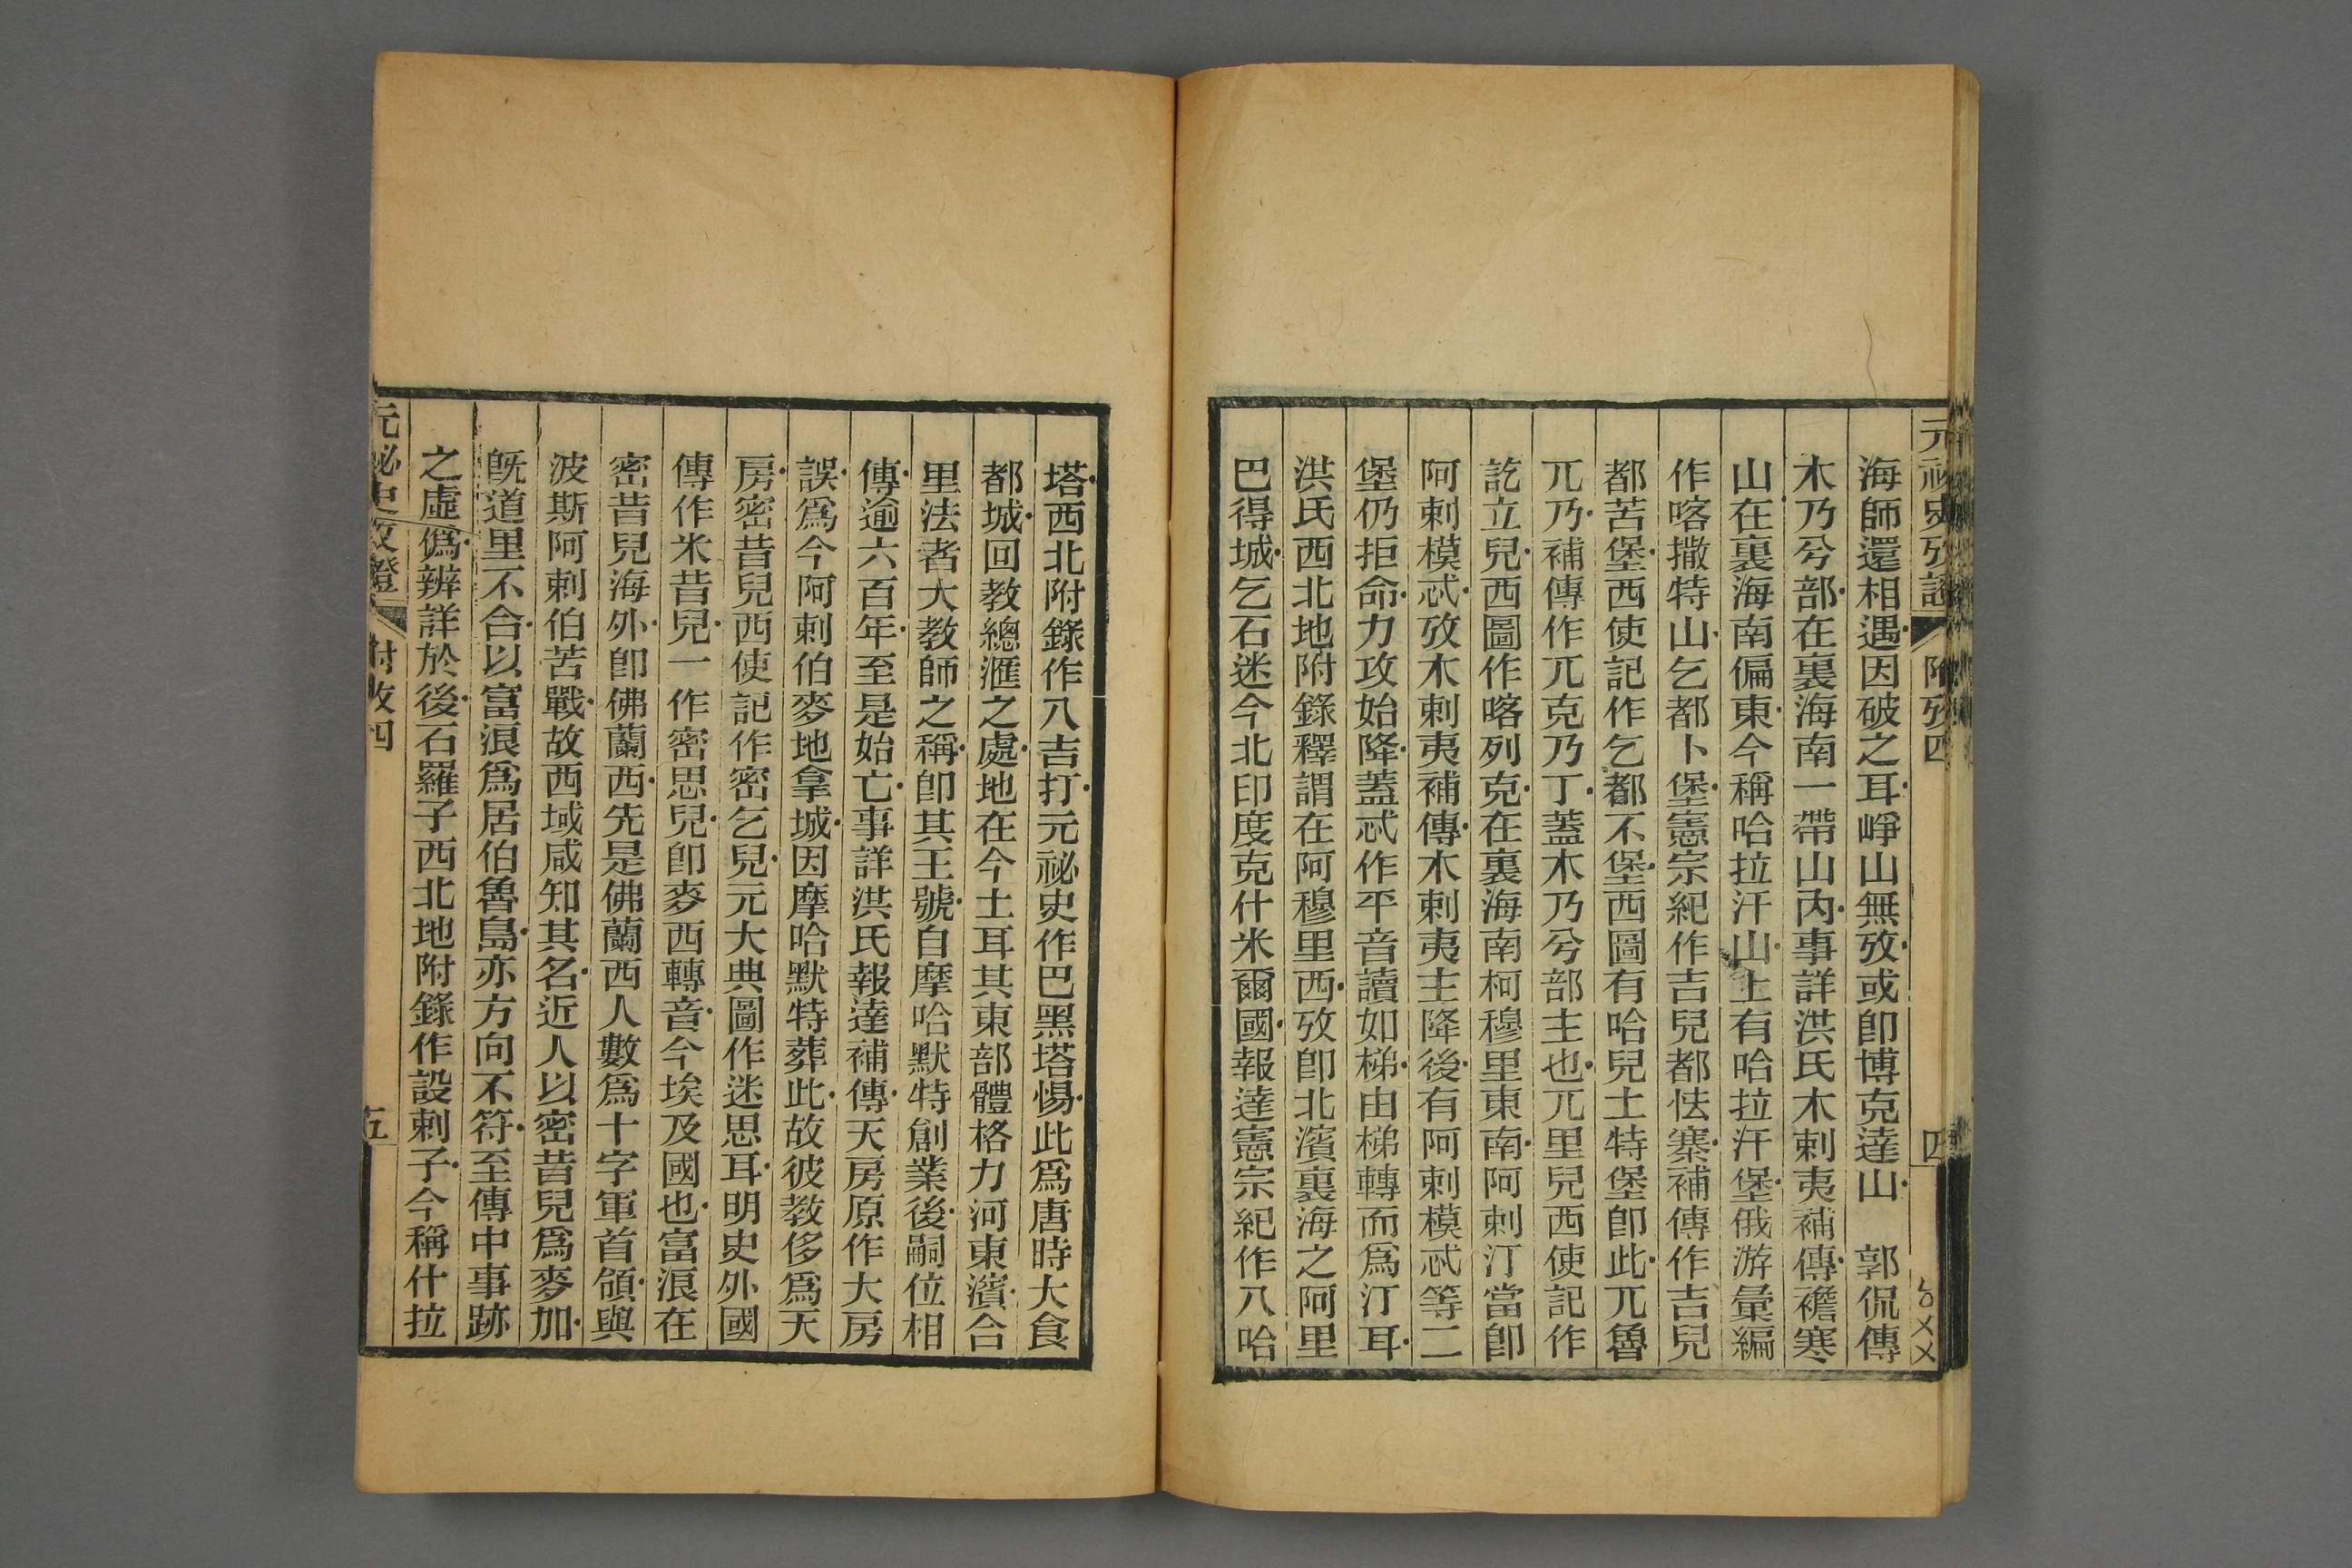 元祕史攷證 附攷四 四
海師還相遇因破之耳崢山無攷或卽博克達山　郭侃傳
木乃兮部在裏海南一帶山內事詳洪氏木剌夷補傳襜寒
山在裏海南偏東今稱哈拉汗山上有哈拉汗堡俄游彙編
作喀撒特山乞都卜堡憲宗紀作吉兒都怯寨補傳作吉兒
都苦堡西使記作乞都不堡西圖有哈兒土特堡卽此兀魯
兀乃補傳作兀克乃丁蓋木乃兮部主也兀里兒西使記作
訖立兒西圖作喀列克在裏海南柯穆里東南阿剌汀當卽
阿剌模忒攷木剌夷補傳木剌夷主降後有阿剌模忒等二
堡仍拒命力攻始降蓋忒作平音讀如梯由梯轉而爲汀耳
洪氏西北地附錄釋謂在阿穆里西攷卽北濱裏海之阿里
巴得城乞石迷今北印度克什米爾國報達憲宗紀作八哈
塔西北附錄作八吉打元祕史作巴黑塔惕此爲唐時大食
都城回教總滙之處地在今土耳其東部體格力河東濱合
里法者大教師之稱卽其王號自摩哈默特創業後嗣位相
傳逾六百年至是始亡事詳洪氏報達補傳天房原作大房
誤爲今阿剌伯麥地拿城因摩哈默特葬此故彼教侈爲天
房密昔兒西使記作密乞兒元大典圖作迷思耳明史外國
傳作米昔兒一作密思兒卽麥西轉音今埃及國也富浪在
密昔兒海外卽佛蘭西先是佛蘭西人數爲十字軍首領與
波斯阿剌伯苦戰故西域咸知其名近人以密昔兒爲麥加
旣道里不合以富浪爲居伯魯島亦方向不符至傳中事跡
之虛僞辨詳於後石羅子西北地附錄作設剌子今稱什拉
元祕史攷證 附攷四 五